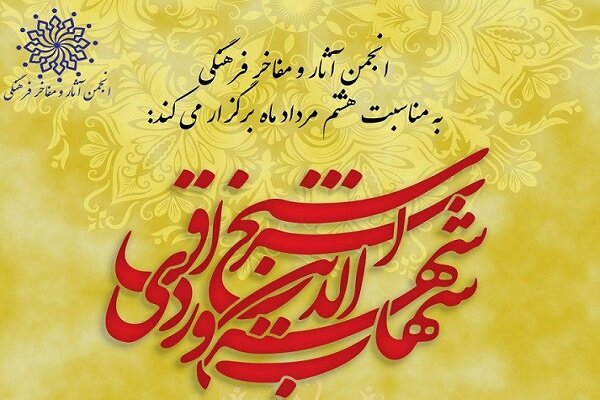 انجمن آثار و مفاخر فرهنگی
انجمن آثار و مفاخر فرهنگی
به مناسبت هشتم مرداد ماه برگزار می کند:
شیخ اشراق
شهاب الدین سهروردی